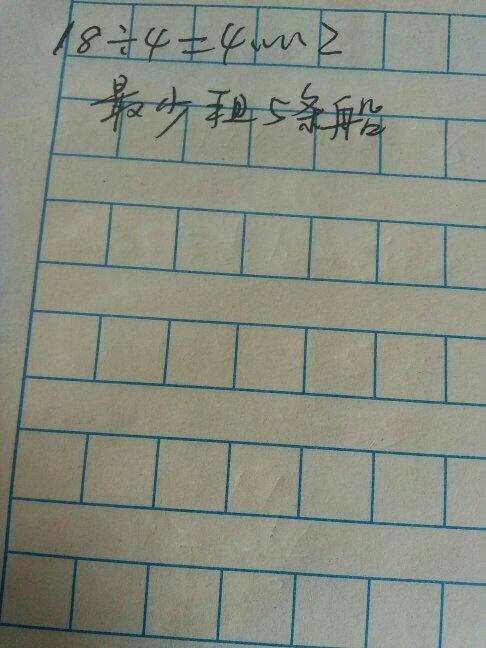 18÷4=4……2
最少租5条船